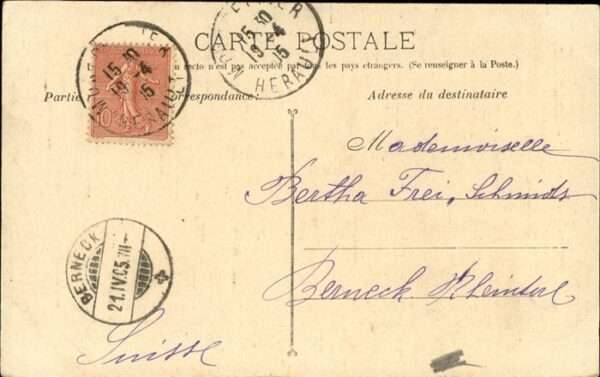 CARTE POSTALE
recto n'est pas accepté par tous les pays étrangers. (Se renseigner à la Poste.)
Partie
Correspondance:
Adresse du destinataire
15 30
19 -4
05
HERAULT
15 30
19 -4
05
HERAULT
10
Mademoiselle
Bertha Frei, Schmids
Berneck Rheintal
BERNECK
21.IV.05.VII-
Suisse